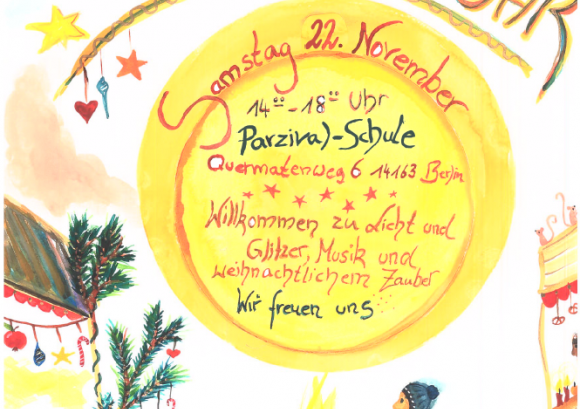 Samstag 22. November
14⁰⁰-18⁰⁰ Uhr
Parzival-Schule
Quermatenweg 6 14163 Berlin
Willkommen zu Licht und
Glitzer, Musik und
weihnachtlichem Zauber
Wir freuen uns